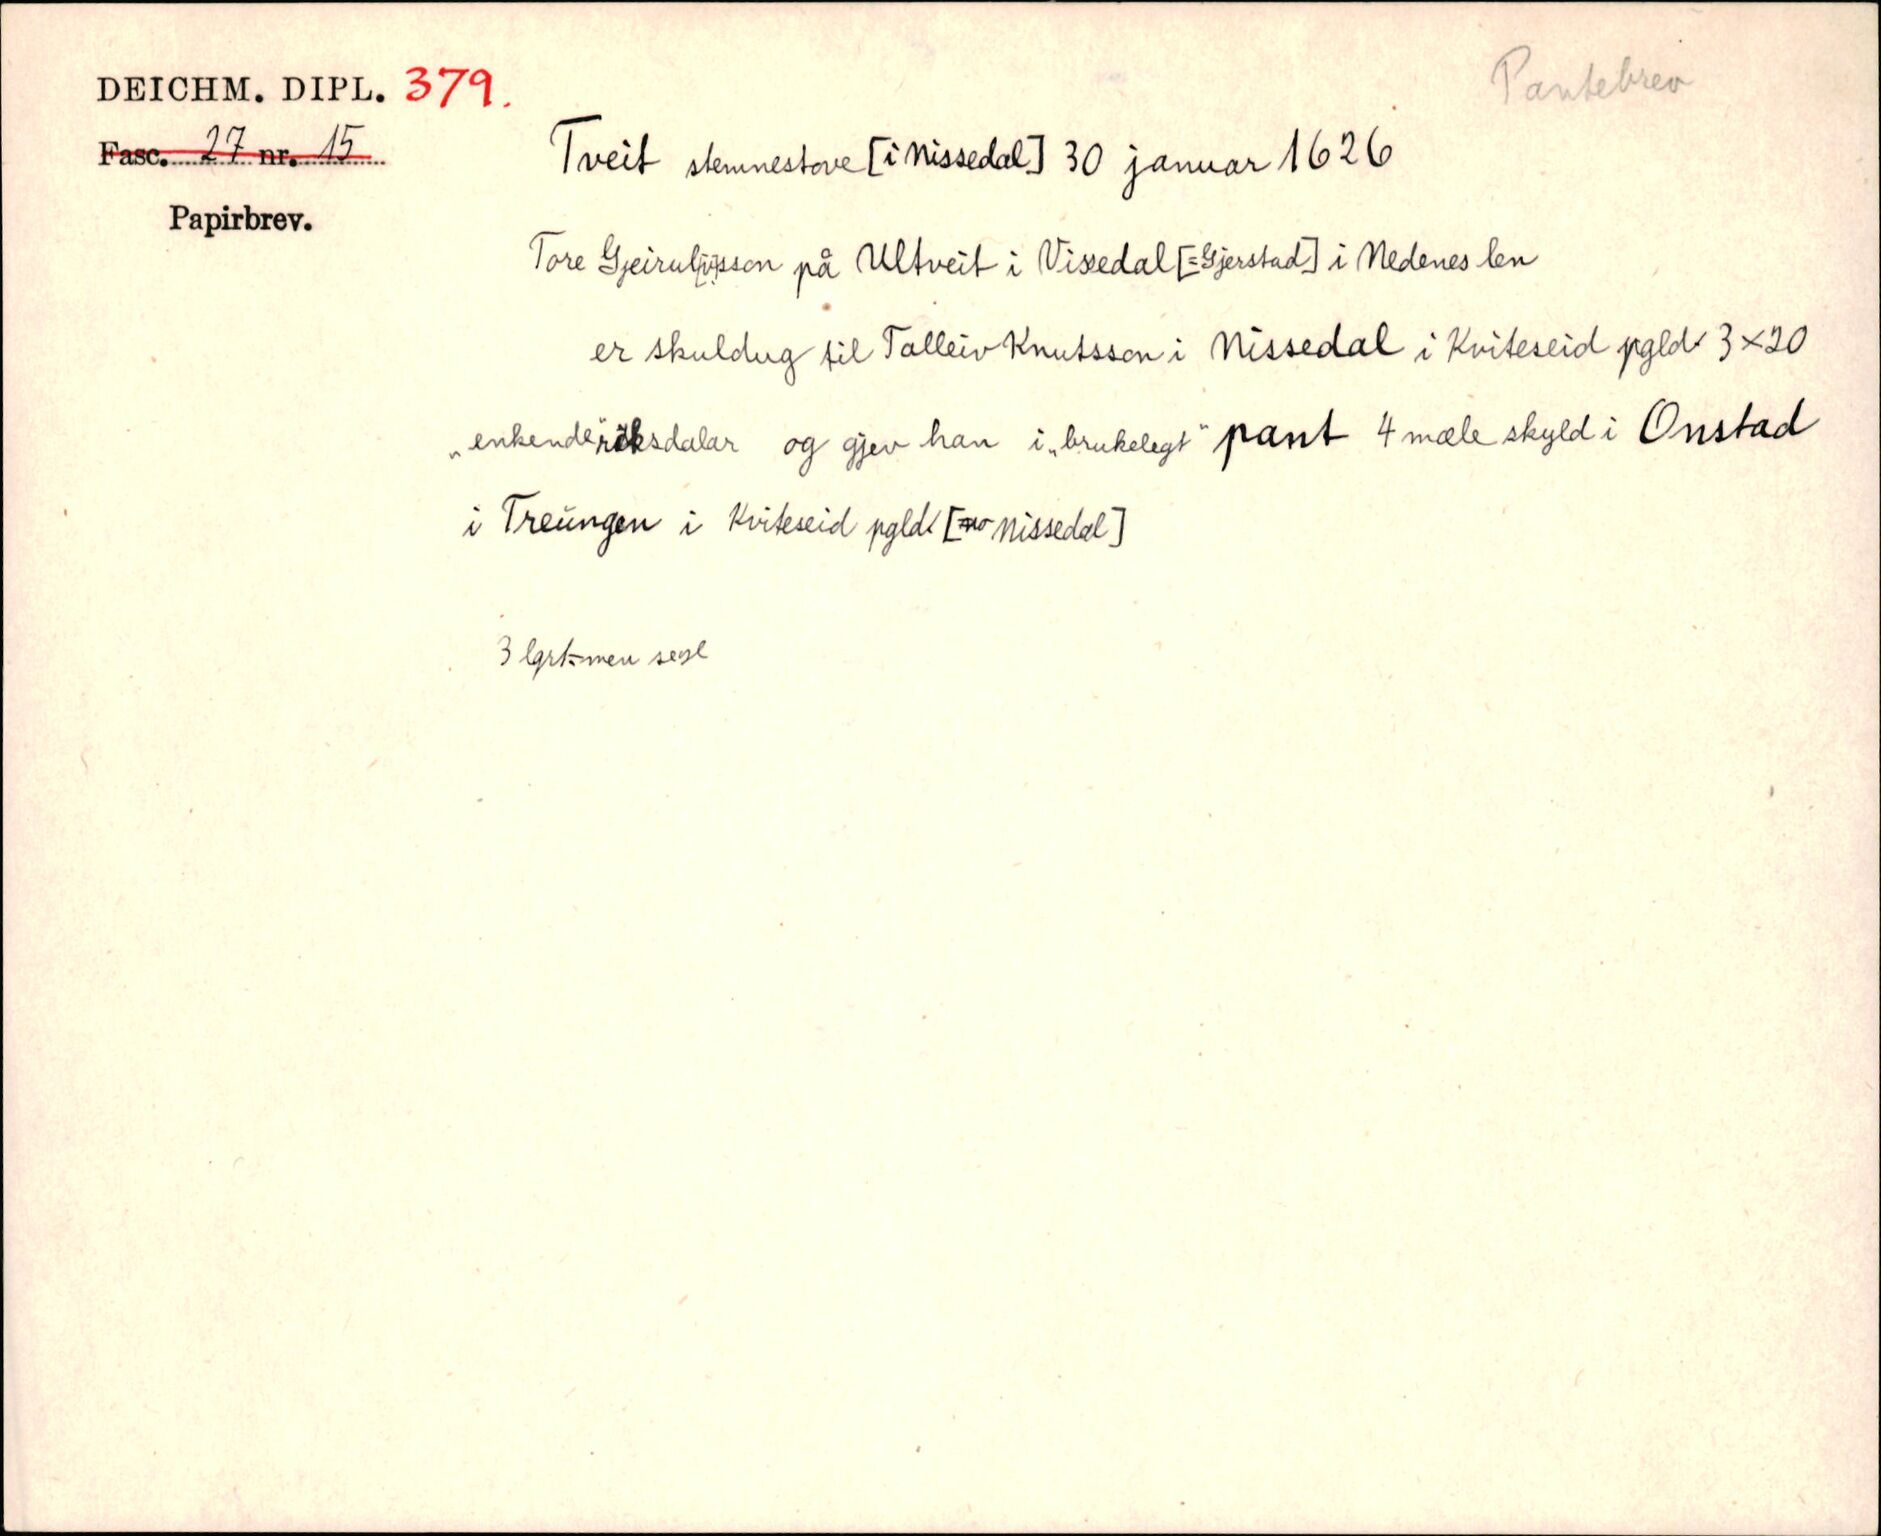 DEICHM. DIPL. 379.
Pantebrev
Fasc. 27 nr. 15
Papirbrev.
Tveit stemnestove [i Nissedal] 30 januar 1626
Tore Gjeirul[v]sson på Ultveit i Vissedal [=Gjerstad] i Nedenes len
er skuldug til Talleiv Knutsson i Nissedal i Kviteseid pgld. 3×20
„enkende" riksdalar og gjev han i „brukelegt" pant 4 mæle skyld i Onstad
i Treungen i Kviteseid pgld. [no Nissedal]
3 lgrt-men segl